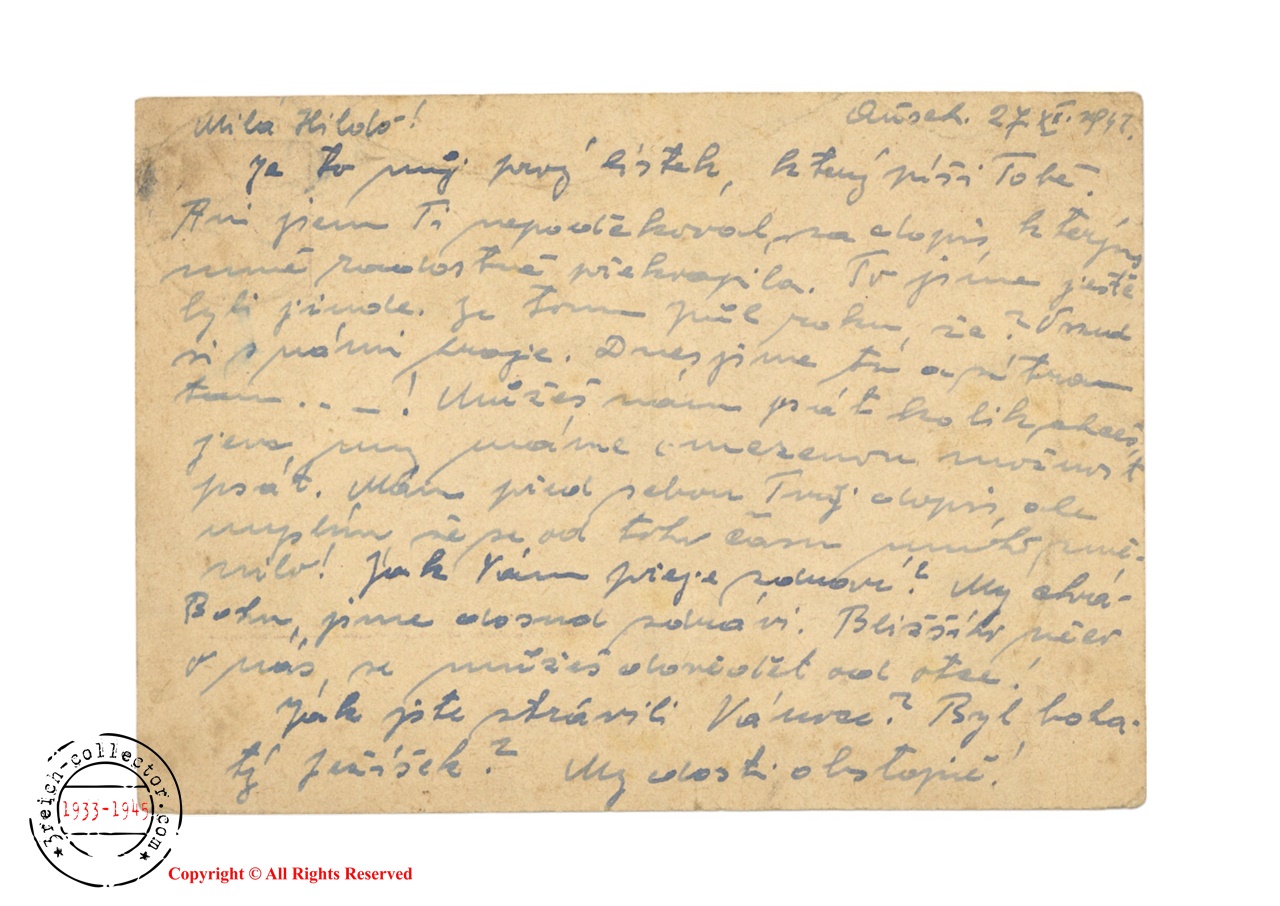 Milá Hildo! Aúsek. 27 XII. 1941.
Je to můj prvý lístek, který píši Tobě.
Ani jsem Ti nepoděkoval za dopis, kterým
mně radostně překvapila. To jsme ještě
byli jinde. Je tomu půl roku, že? Osud
si s námi hraje. Dnes jsme tu a zítra
tam . . _ ! Můžeš nám psát kolik chceš,
jen my máme omezenou možnost
psát. Mám před sebou Tvůj dopis, ale
myslím že se od toho času mnoho změ-
nilo! Jak Vám přeje zdraví? My chvá-
Bohu, jsme dosud zdrávi. Bližšího něco
o nás, se můžeš dovědět od otce!
Jak jste strávili Vánoce? Byl boha-
tý Ježíšek? My dosti obstojně!
3reich-collector.com
1933-1945
Copyright © All Rights Reserved